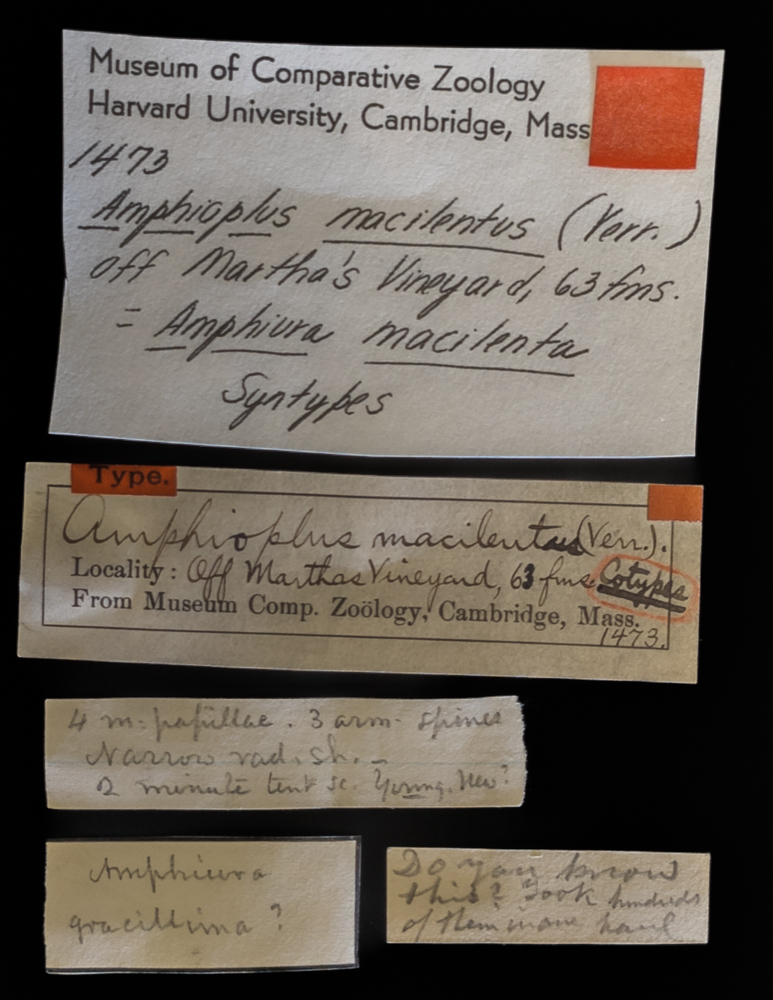 Museum of Comparative Zoology
Harvard University, Cambridge, Mass
1473
Amphioplus macilentus (Verr.)
off Martha's Vineyard, 63 fms.
= Amphiura macilenta
Syntypes
Type.
Amphioplus macilentus (Verr.).
Locality: Off Marthas Vineyard, 63 fms. Cotypes
From Museum Comp. Zoölogy, Cambridge, Mass.
1473.
4 m. papillae. 3 arm. spines
Narrow rad. sh. –
2 minute tent sc. Young. New?
Amphiura
gracillima?
Do you know
this? Took hundreds
of them in one haul